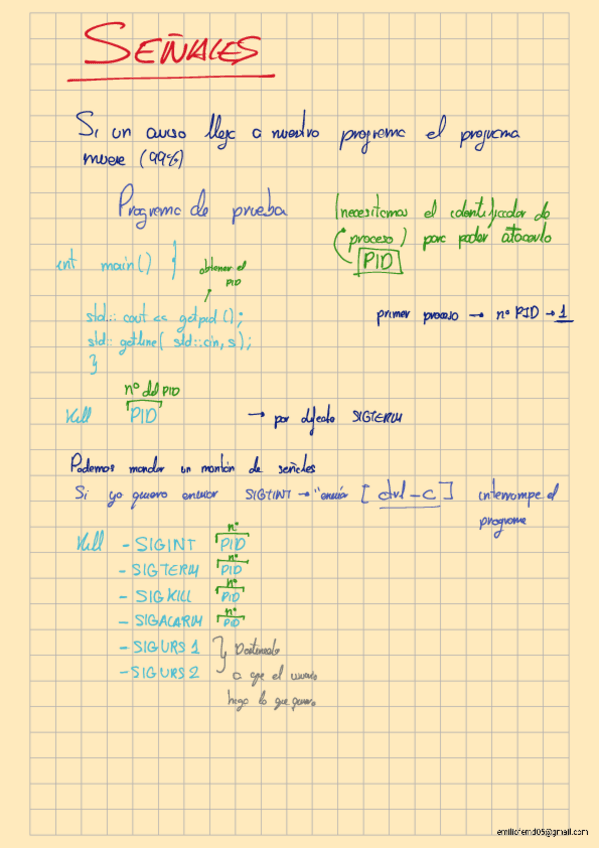 SEÑALES
Si un aviso llega a nuestro programa el programa
muere (99%)
Programa de prueba
(necesitamos el identificador de
proceso) para poder atacarlo
PID
int main() {
obtener el
PID
std:: cout << getpid();
std:: getline( std::cin, s);
}
primer proceso → nº PID → 1
nº del PID
Kill PID → por defecto SIGTERM
Podemos mandar un montón de señales
Si yo quiero enviar SIGTINT → "enviar [ctrl-C] interrompe el
programa
Kill - SIGINT nº PID
- SIGTERM nº PID
- SIGKILL nº PID
- SIGALARM nº PID
- SIGURS 1 } Destinado
- SIGURS 2 a que el usuario
haga lo que quiera
emiliofernd05@gmail.com